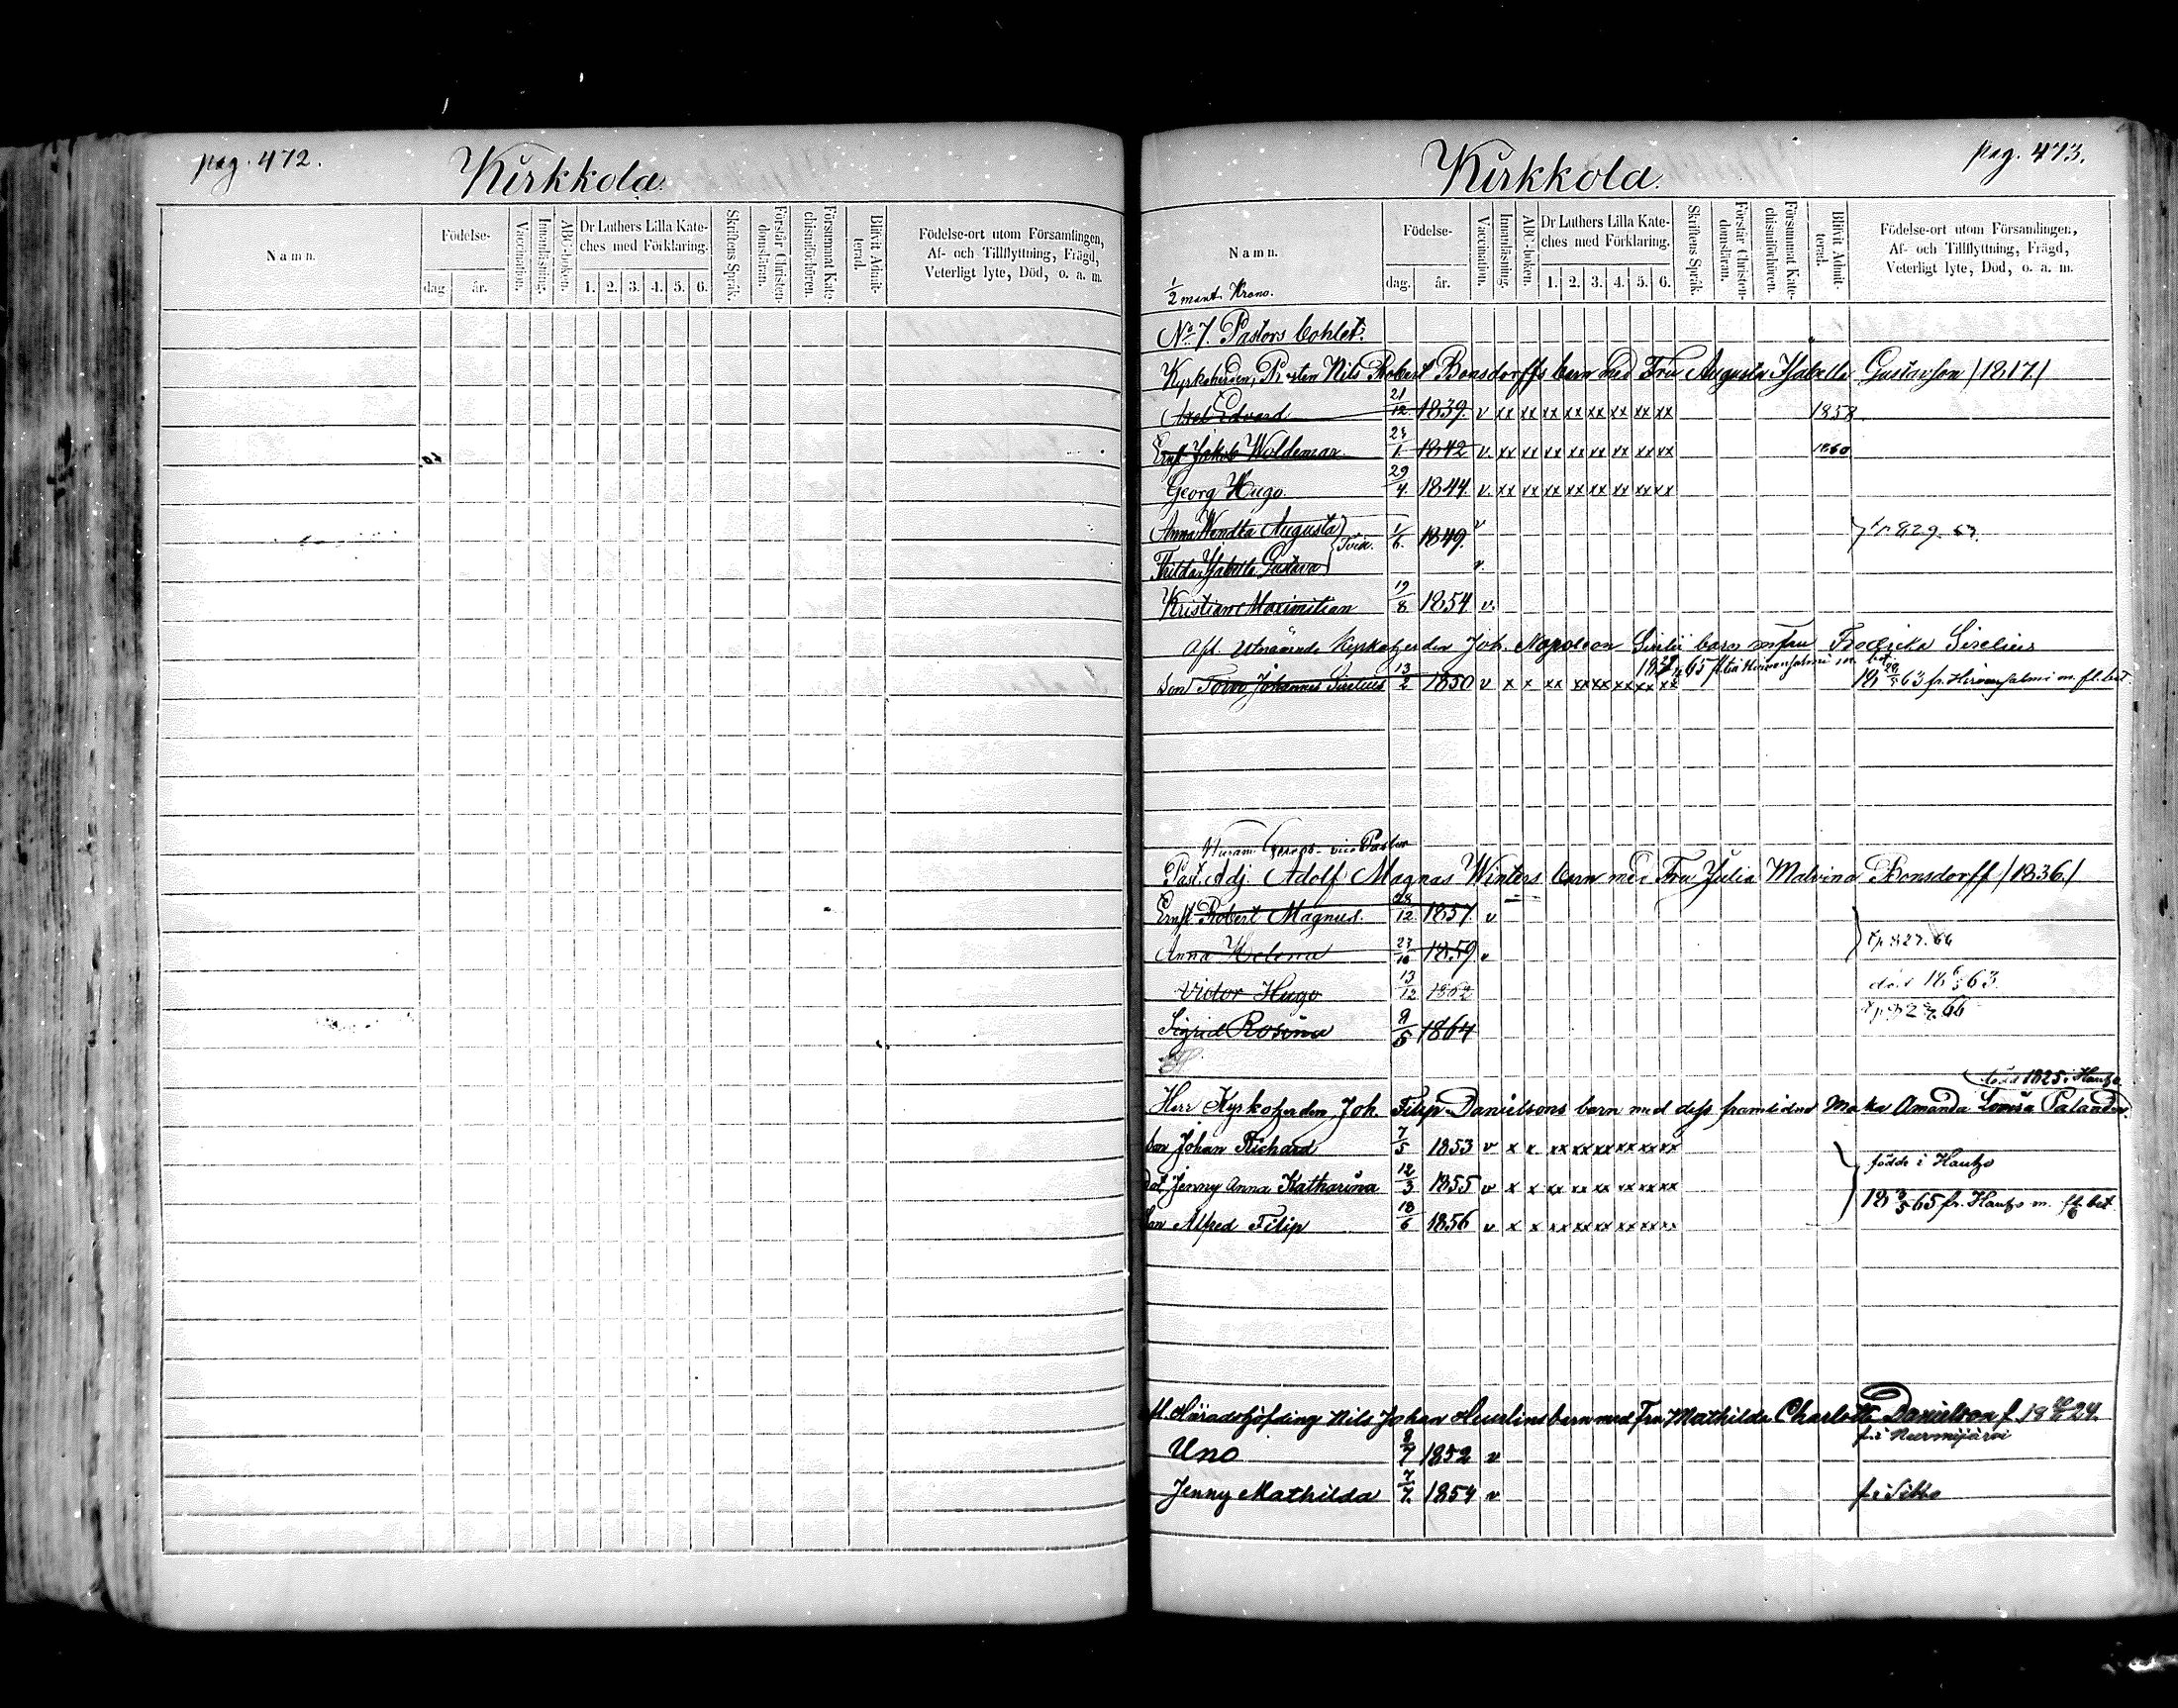 pag. 472.
Kirkkola.
Namn.
Födelse-
dag
år.
Vaccination.
Innanläsning.
ABC-boken.
Dr Luthers Lilla Kate-
ches med Förklaring.
1. 2. 3. 4. 5. 6.
Skriftens Språk.
Förstår Christen-
domsläran.
Försummat Kate-
chismiförhören.
Blifvit Admit-
terad.
Födelse-ort utom Församlingen,
Af- och Tillflyttning, Frägd,
Veterligt lyte, Död, o. a. m.
pag. 473.
Kirkkola.
Namn.
Födelse-
dag.
år.
Vaccination.
Innanläsning.
ABC-boken.
Dr Luthers Lilla Kate-
ches med Förklaring.
1. 2. 3. 4. 5. 6.
Skriftens Språk.
Förstår Christen-
domsläran.
Försummat Kate-
chismiförhören.
Blifvit Admit-
terad.
Födelse-ort utom Församlingen,
Af- och Tillflyttning, Frägd,
Veterligt lyte, Död, o. a. m.
1/2 mant. Krono.
No 7. Pastors bohlet:
Kyrkoherden, Prosten Nils Robert Bonsdorffs barn med Fru Augusta Isabella Gustavson /1817/
Axel Edvard 21/12 1839 v xx xx xx xx xx xx xx xx 1858
Ernst Jakob Woldemar 1842 v. xx xx xx xx xx xx xx xx 1860
Georg Hugo. 29/4. 1844. v. xx xx xx xx xx xx xx xx
Anna Wendla Augusta 1/6. 1849. v
Hilda Isabella Gustava v.
Kristian Maximilian 19/8 1854 v.
Afl. Utnämnde Kyrkoherden Joh. Napoleon Sirelii barn m fru Fredrika Sirelius
Son Toivo Johannes Sirelius 13/2 1850 v x x xx xx xx xx xx xx 63 fr. Hirvensalmi m. fl. bet.
Past. Adj. Adolf Magnus Winters barn med Fru Julia Malvina Bonsdorff /1836./
Ernst Robert Magnus. 28/12 1857. v
Anna Helena 23/10 1859 v
Victor Hugo 13/12 1862 död 63.
Sigrid Rosina 9/5 1864
född 1825 i Hauho
Herr Kyrkoherden Joh. Filip Danielsons barn med dess framlidna Maka Amanda Lovisa Palander.
Son Johan Richard 7/5 1853 v x x xx xx xx xx xx xx
Dot. Jenny Anna Katharina 12/3 1855 v x x xx xx xx xx xx xx
födde i Hauho
18 3/5 65 fr. Hauho m. fl. bet.
Son Alfred Filip 18/6 1856 v x x xx xx xx xx xx xx
Afl. Häradshöfding Nils Johan Heurlins barn med Fru Mathilda Charlotta Danielson f. 18 24.
f. i Nurmijärvi
Uno 8/7 1852 v
Jenny Mathilda 7/7. 1854 v f. i Sibbo